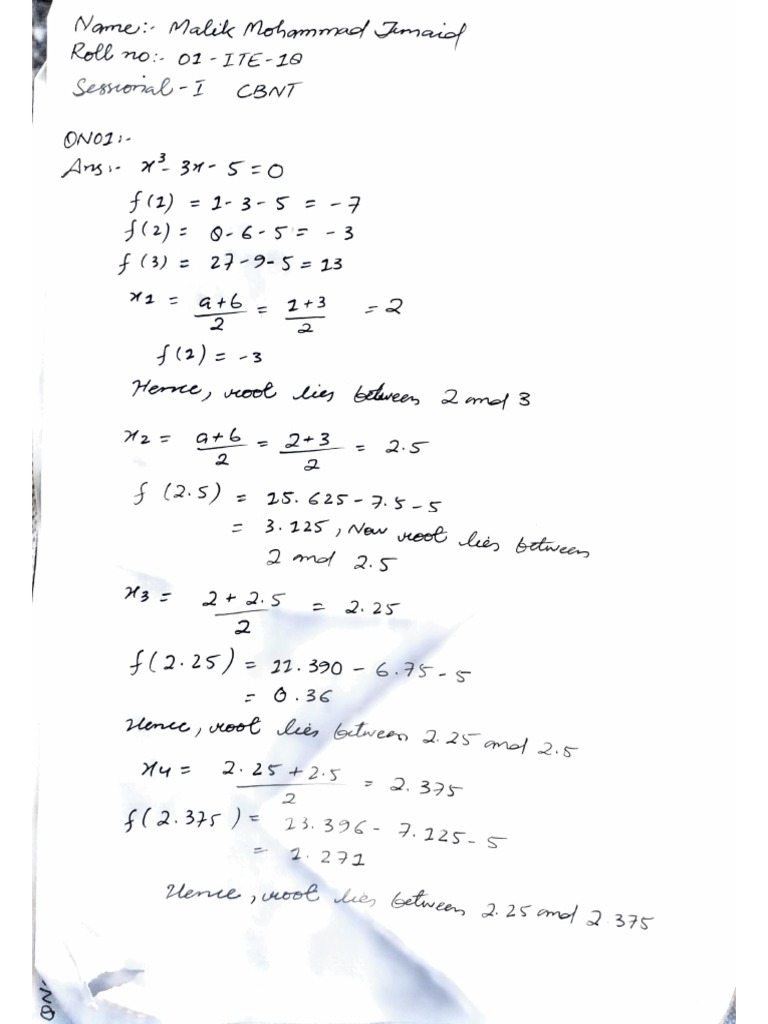 Name:- Malik Mohammad Junaid
Roll no:- 01-ITE-18
Sessional-I CBNT
QN01:-
Ans:- x³- 3x- 5 = 0
f(1) = 1-3-5 = -7
f(2) = 8-6-5 = -3
f(3) = 27-9-5 = 13
x1 = a+b/2 = 1+3/2 = 2
f(2) = -3
Hence, root lies between 2 and 3
x2 = a+b/2 = 2+3/2 = 2.5
f (2.5) = 15.625-7.5-5
= 3.125, Now root lies between
2 and 2.5
x3 = 2+2.5/2 = 2.25
f(2.25) = 11.390 - 6.75-5
= 0.36
Hence, root lies between 2.25 and 2.5
x4 = 2.25+2.5/2 = 2.375
f(2.375) = 13.396- 7.125-5
= 1.271
Hence, root lies between 2.25 and 2.375
QN-